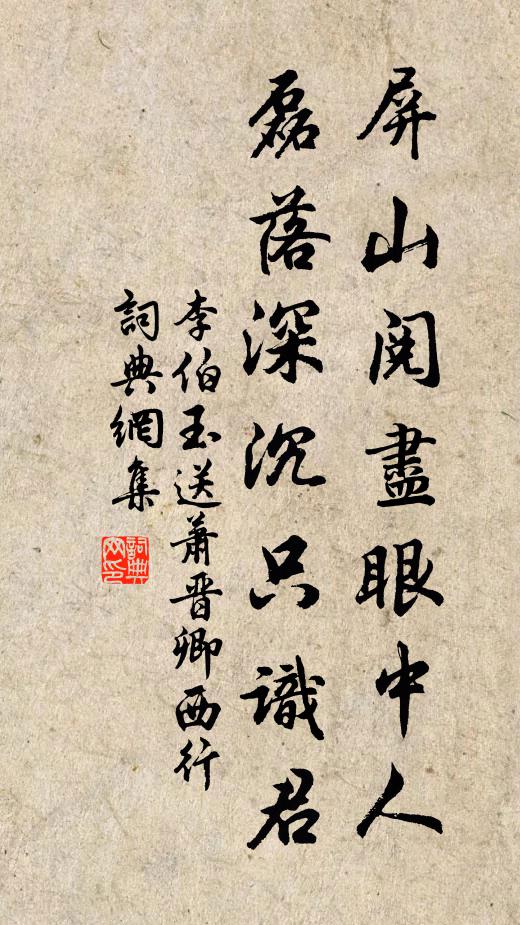 屏山閱盡眼中人
磊落深沉只識君
李伯玉送蕭晉卿西行
詞典網集
詞典網印